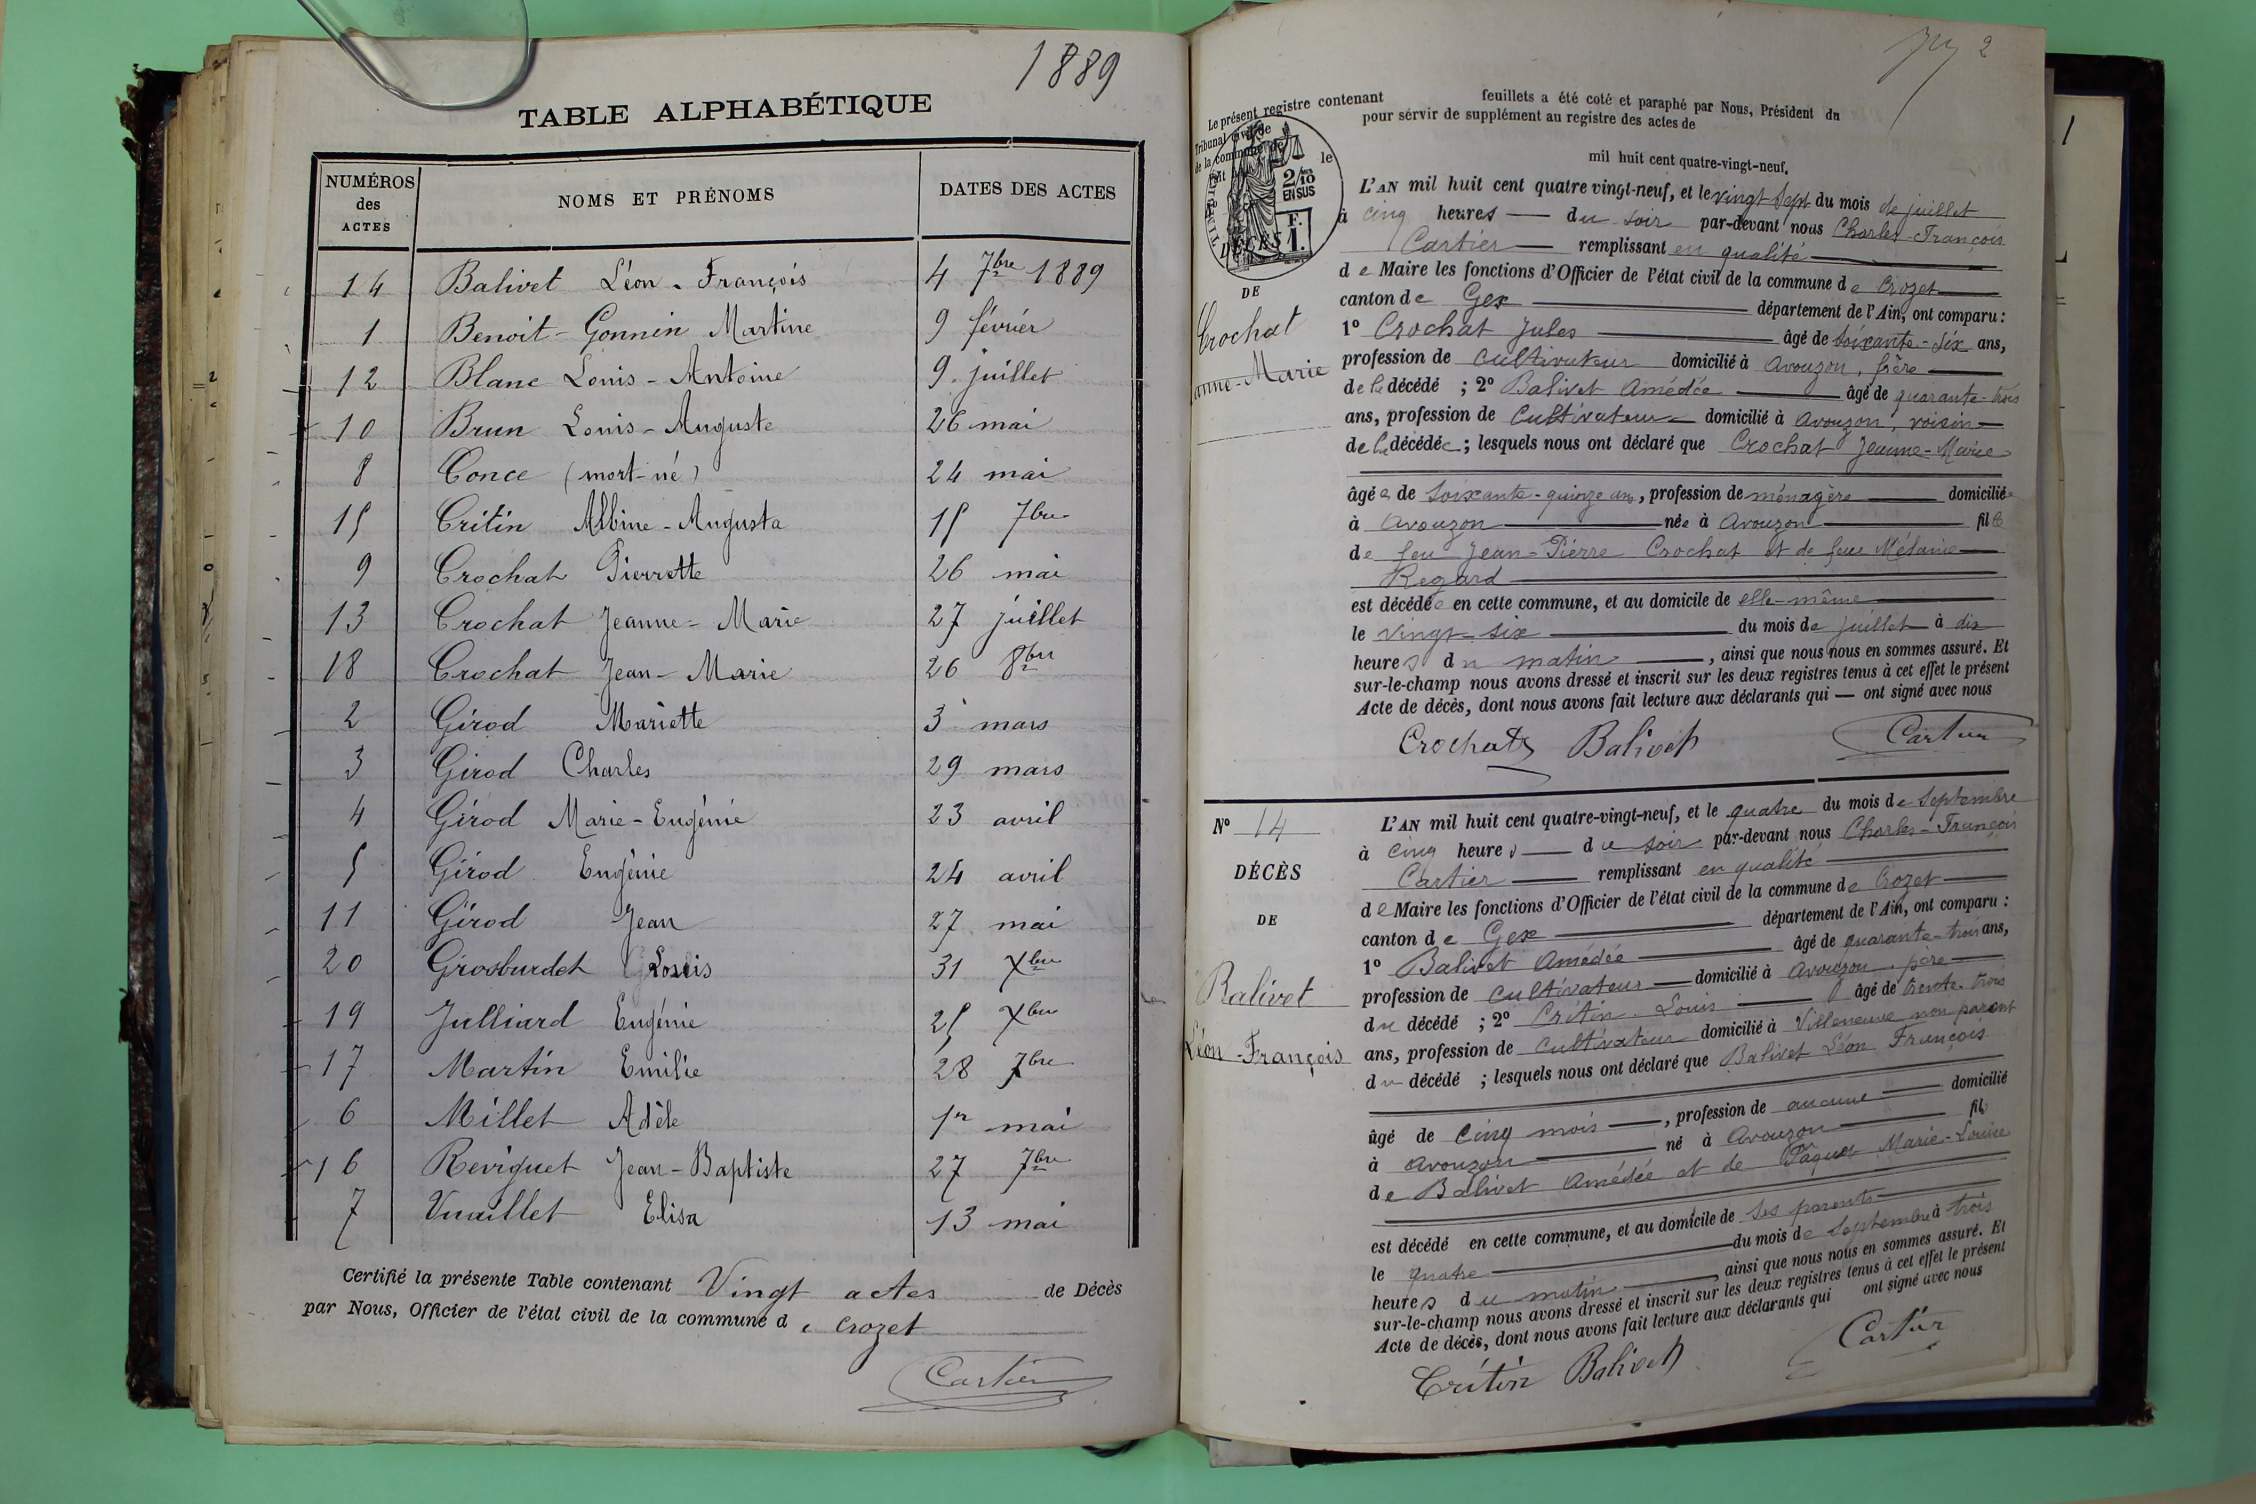 1889
TABLE ALPHABÉTIQUE
NUMÉROS des ACTES NOMS ET PRÉNOMS DATES DES ACTES
14 Balivet Léon-François 4 7bre 1889
1 Benoit-Gonnin Martine 9 février
12 Blanc Louis-Antoine 9 juillet
10 Brun Louis-Auguste 26 mai
8 Conce (mort-né) 24 mai
15 Critin Albine-Augusta 15 7bre
9 Crochat Pierrette 26 mai
13 Crochat Jeanne-Marie 27 juillet
18 Crochat Jean-Marie 26 8bre
2 Girod Mariette 3 mars
3 Girod Charles 29 mars
4 Girod Marie-Eugénie 23 avril
5 Girod Eugénie 24 avril
11 Girod Jean 27 mai
20 Grosburdet Louis 31 Xbre
19 Julliard Eugénie 25 Xbre
17 Martin Emilie 28 7bre
6 Millet Adèle 1er mai
16 Reviguet Jean-Baptiste 27 7bre
7 Vuaillet Elisa 13 mai
Certifié la présente Table contenant Vingt actes de Décès
par Nous, Officier de l'état civil de la commune de Crozet
Cartier
2
Le présent registre contenant feuillets a été coté et paraphé par Nous, Président du
Tribunal civil de pour servir de supplément au registre des actes de
de la commune de
le mil huit cent quatre-vingt-neuf.
2/10 EN SUS
F. 1.
DÉCÈS
DE
Crochat
anne-Marie
L'AN mil huit cent quatre vingt-neuf, et le vingt sept du mois de juillet
à cinq heures — du soir par-devant nous Charles-François
Cartier — remplissant en qualité
de Maire les fonctions d'Officier de l'état civil de la commune de Crozet
canton de Gex département de l'Ain, ont comparu :
1° Crochat Jules âgé de soixante-six ans,
profession de cultivateur domicilié à Avouzon, frère
de la décédé ; 2° Balivet Amédée âgé de quarante-trois
ans, profession de Cultivateur domicilié à Avouzon, voisin
de la décédée ; lesquels nous ont déclaré que Crochat Jeanne-Marie
âgée de soixante-quinze ans, profession de ménagère domiciliée
à Avouzon née à Avouzon fille
de feu Jean-Pierre Crochat et de feue Mélanie
Regard
est décédée en cette commune, et au domicile de elle-même
le vingt-six du mois de juillet à dix
heures du matin, ainsi que nous nous en sommes assuré. Et
sur-le-champ nous avons dressé et inscrit sur les deux registres tenus à cet effet le présent
Acte de décès, dont nous avons fait lecture aux déclarants qui — ont signé avec nous
Crochat Balivet Cartier
N° 14
DÉCÈS
DE
Balivet
Léon-François
L'AN mil huit cent quatre-vingt-neuf, et le quatre du mois de Septembre
à cinq heures — du soir par-devant nous Charles-François
Cartier — remplissant en qualité
de Maire les fonctions d'Officier de l'état civil de la commune de Crozet
canton de Gex département de l'Ain, ont comparu :
1° Balivet Amédée âgé de quarante-trois ans,
profession de cultivateur domicilié à Avouzon, père
du décédé ; 2° Critin Louis âgé de trente-trois
ans, profession de cultivateur domicilié à Villeneuve non parent
du décédé ; lesquels nous ont déclaré que Balivet Léon François
âgé de cinq mois, profession de aucune domicilié
à Avouzon né à Avouzon fils
de Balivet Amédée et de Pâquet Marie-Louise
est décédé en cette commune, et au domicile de ses parents
le quatre du mois de Septembre à trois
heures du matin, ainsi que nous nous en sommes assuré. Et
sur-le-champ nous avons dressé et inscrit sur les deux registres tenus à cet effet le présent
Acte de décès, dont nous avons fait lecture aux déclarants qui ont signé avec nous
Critin Balivet Cartier